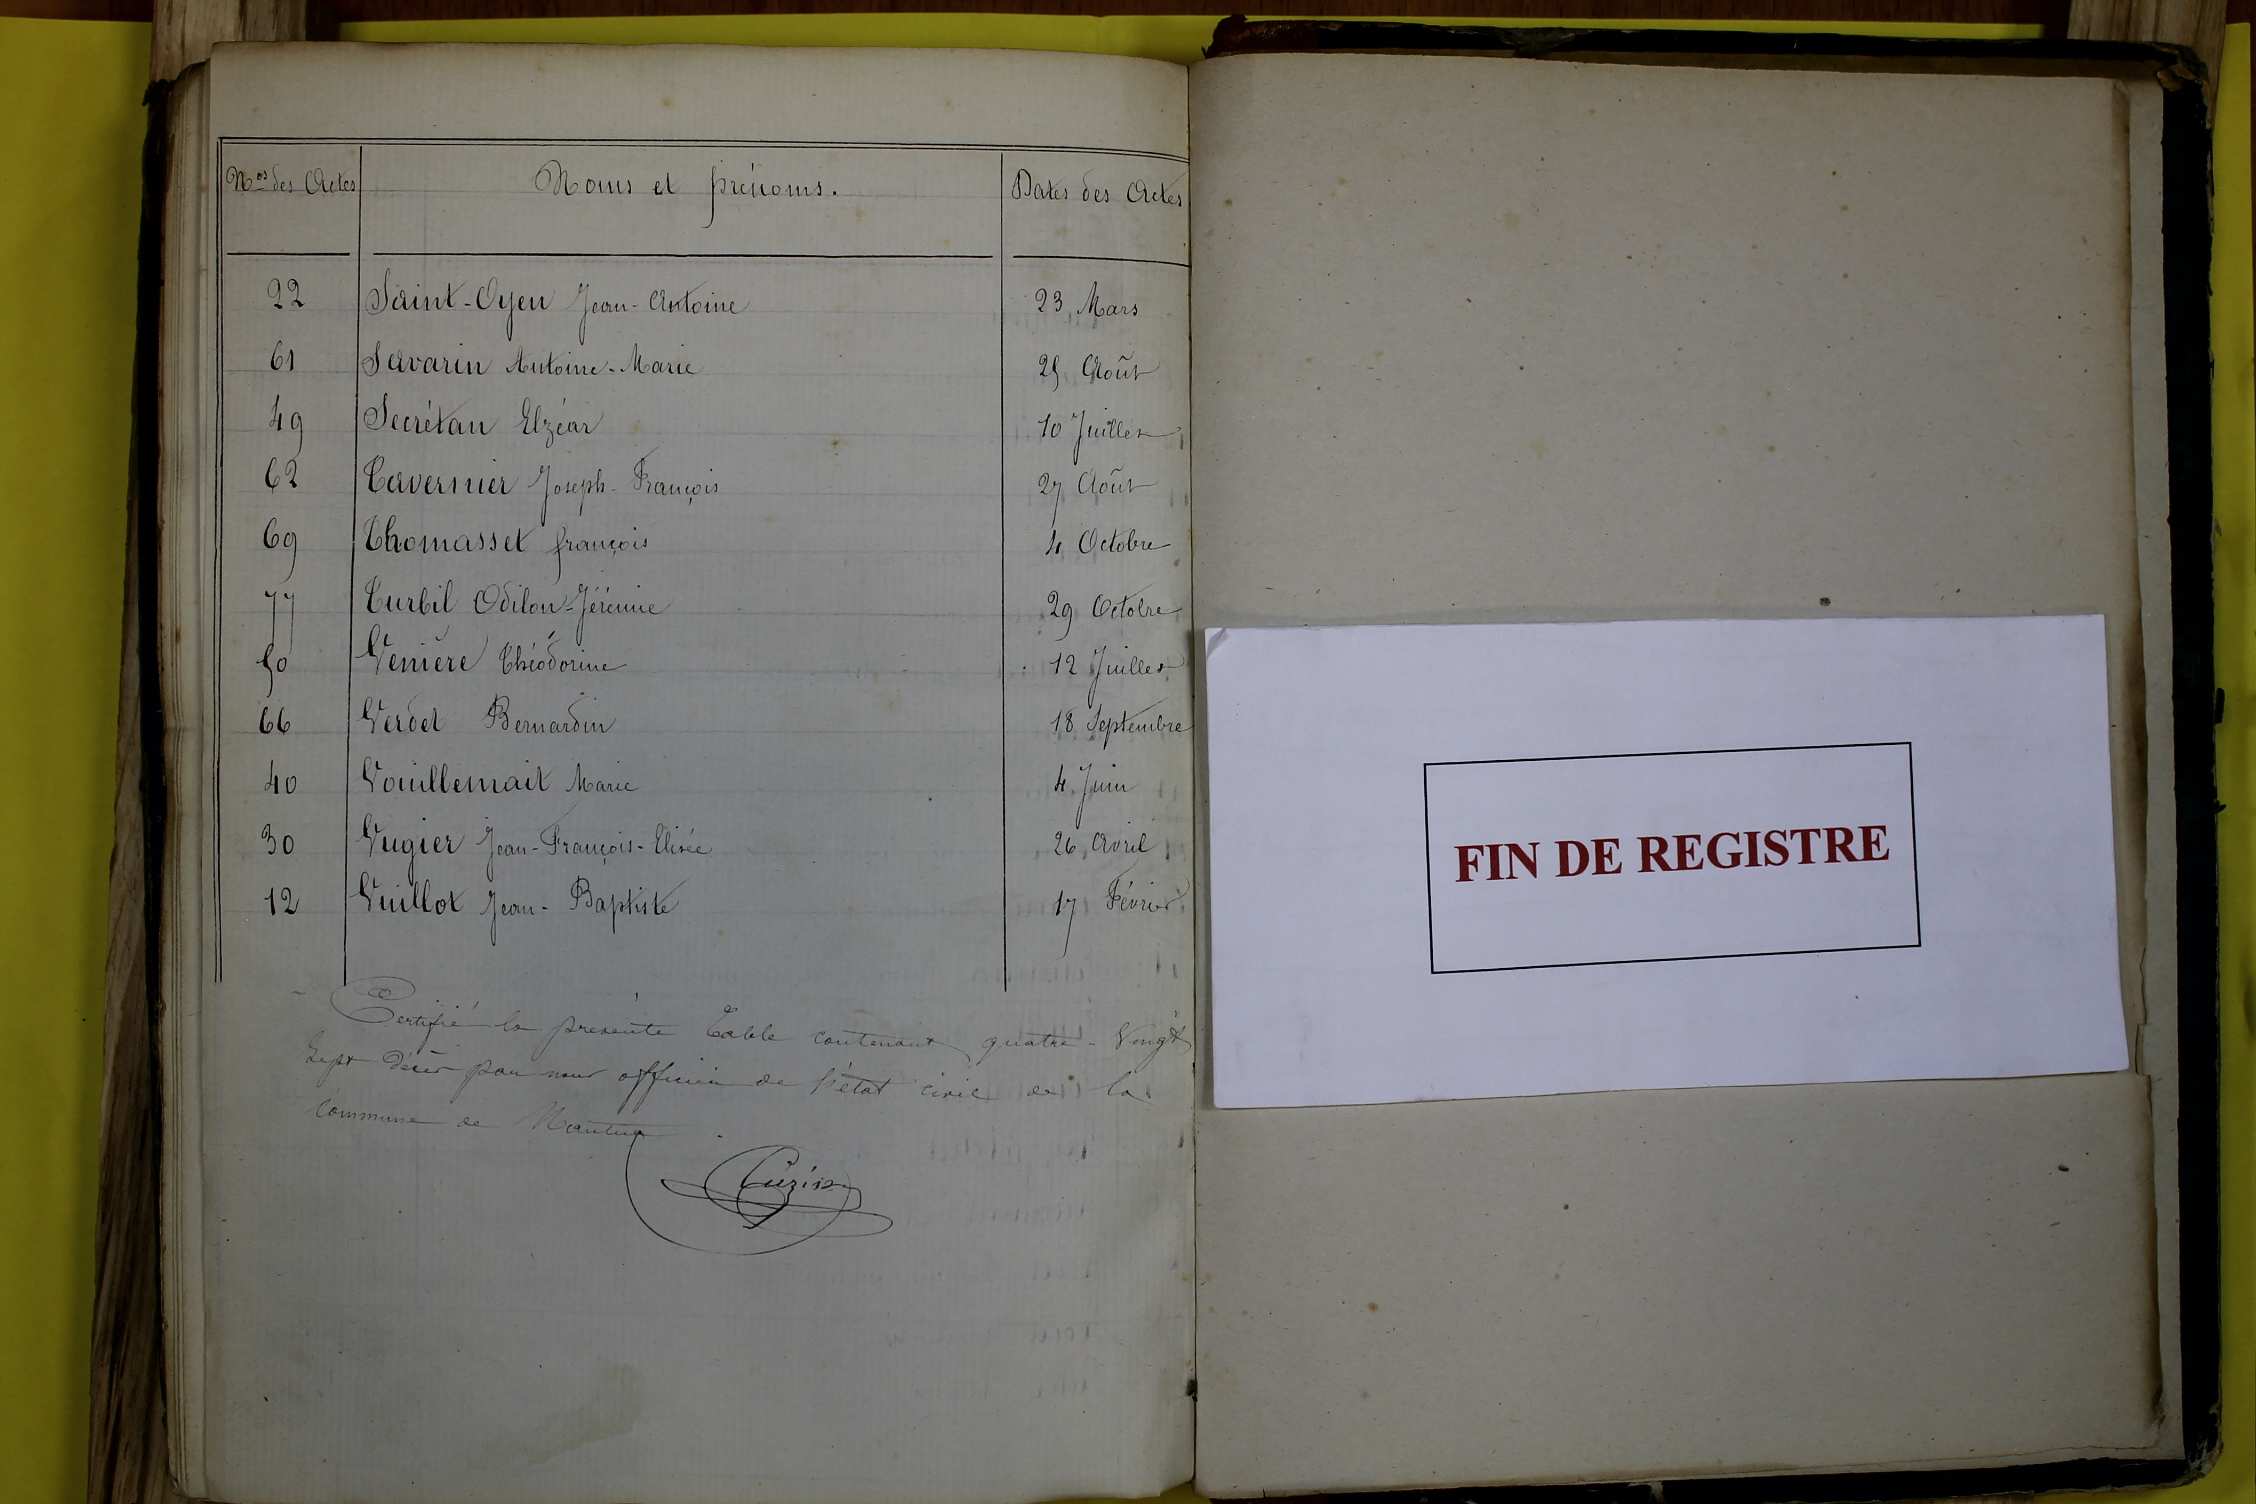 Nos des Actes Noms et prénoms. Dates des Actes
22 Saint-Oyen Jean-Antoine 23 Mars
61 Savarin Antoine-Marie 25 Août
49 Secrétan Elzéar 10 Juillet
62 Tavernier Joseph-François 27 Août
69 Thomasset françois 4 Octobre
77 Turbil Odilon-Jérémie 29 Octobre
50 Venière Théodorine 12 Juillet
66 Verdet Bernardin 18 Septembre
40 Vouillemait Marie 4 Juin
30 Vugier Jean-François-Elisée 26 Avril
12 Vuillot Jean-Baptiste 17 Février
Certifié la présente Table contenant quatre-Vingt
Sept décès par nous officier de l'état civil de la
commune de Nantua
Cuzin
FIN DE REGISTRE